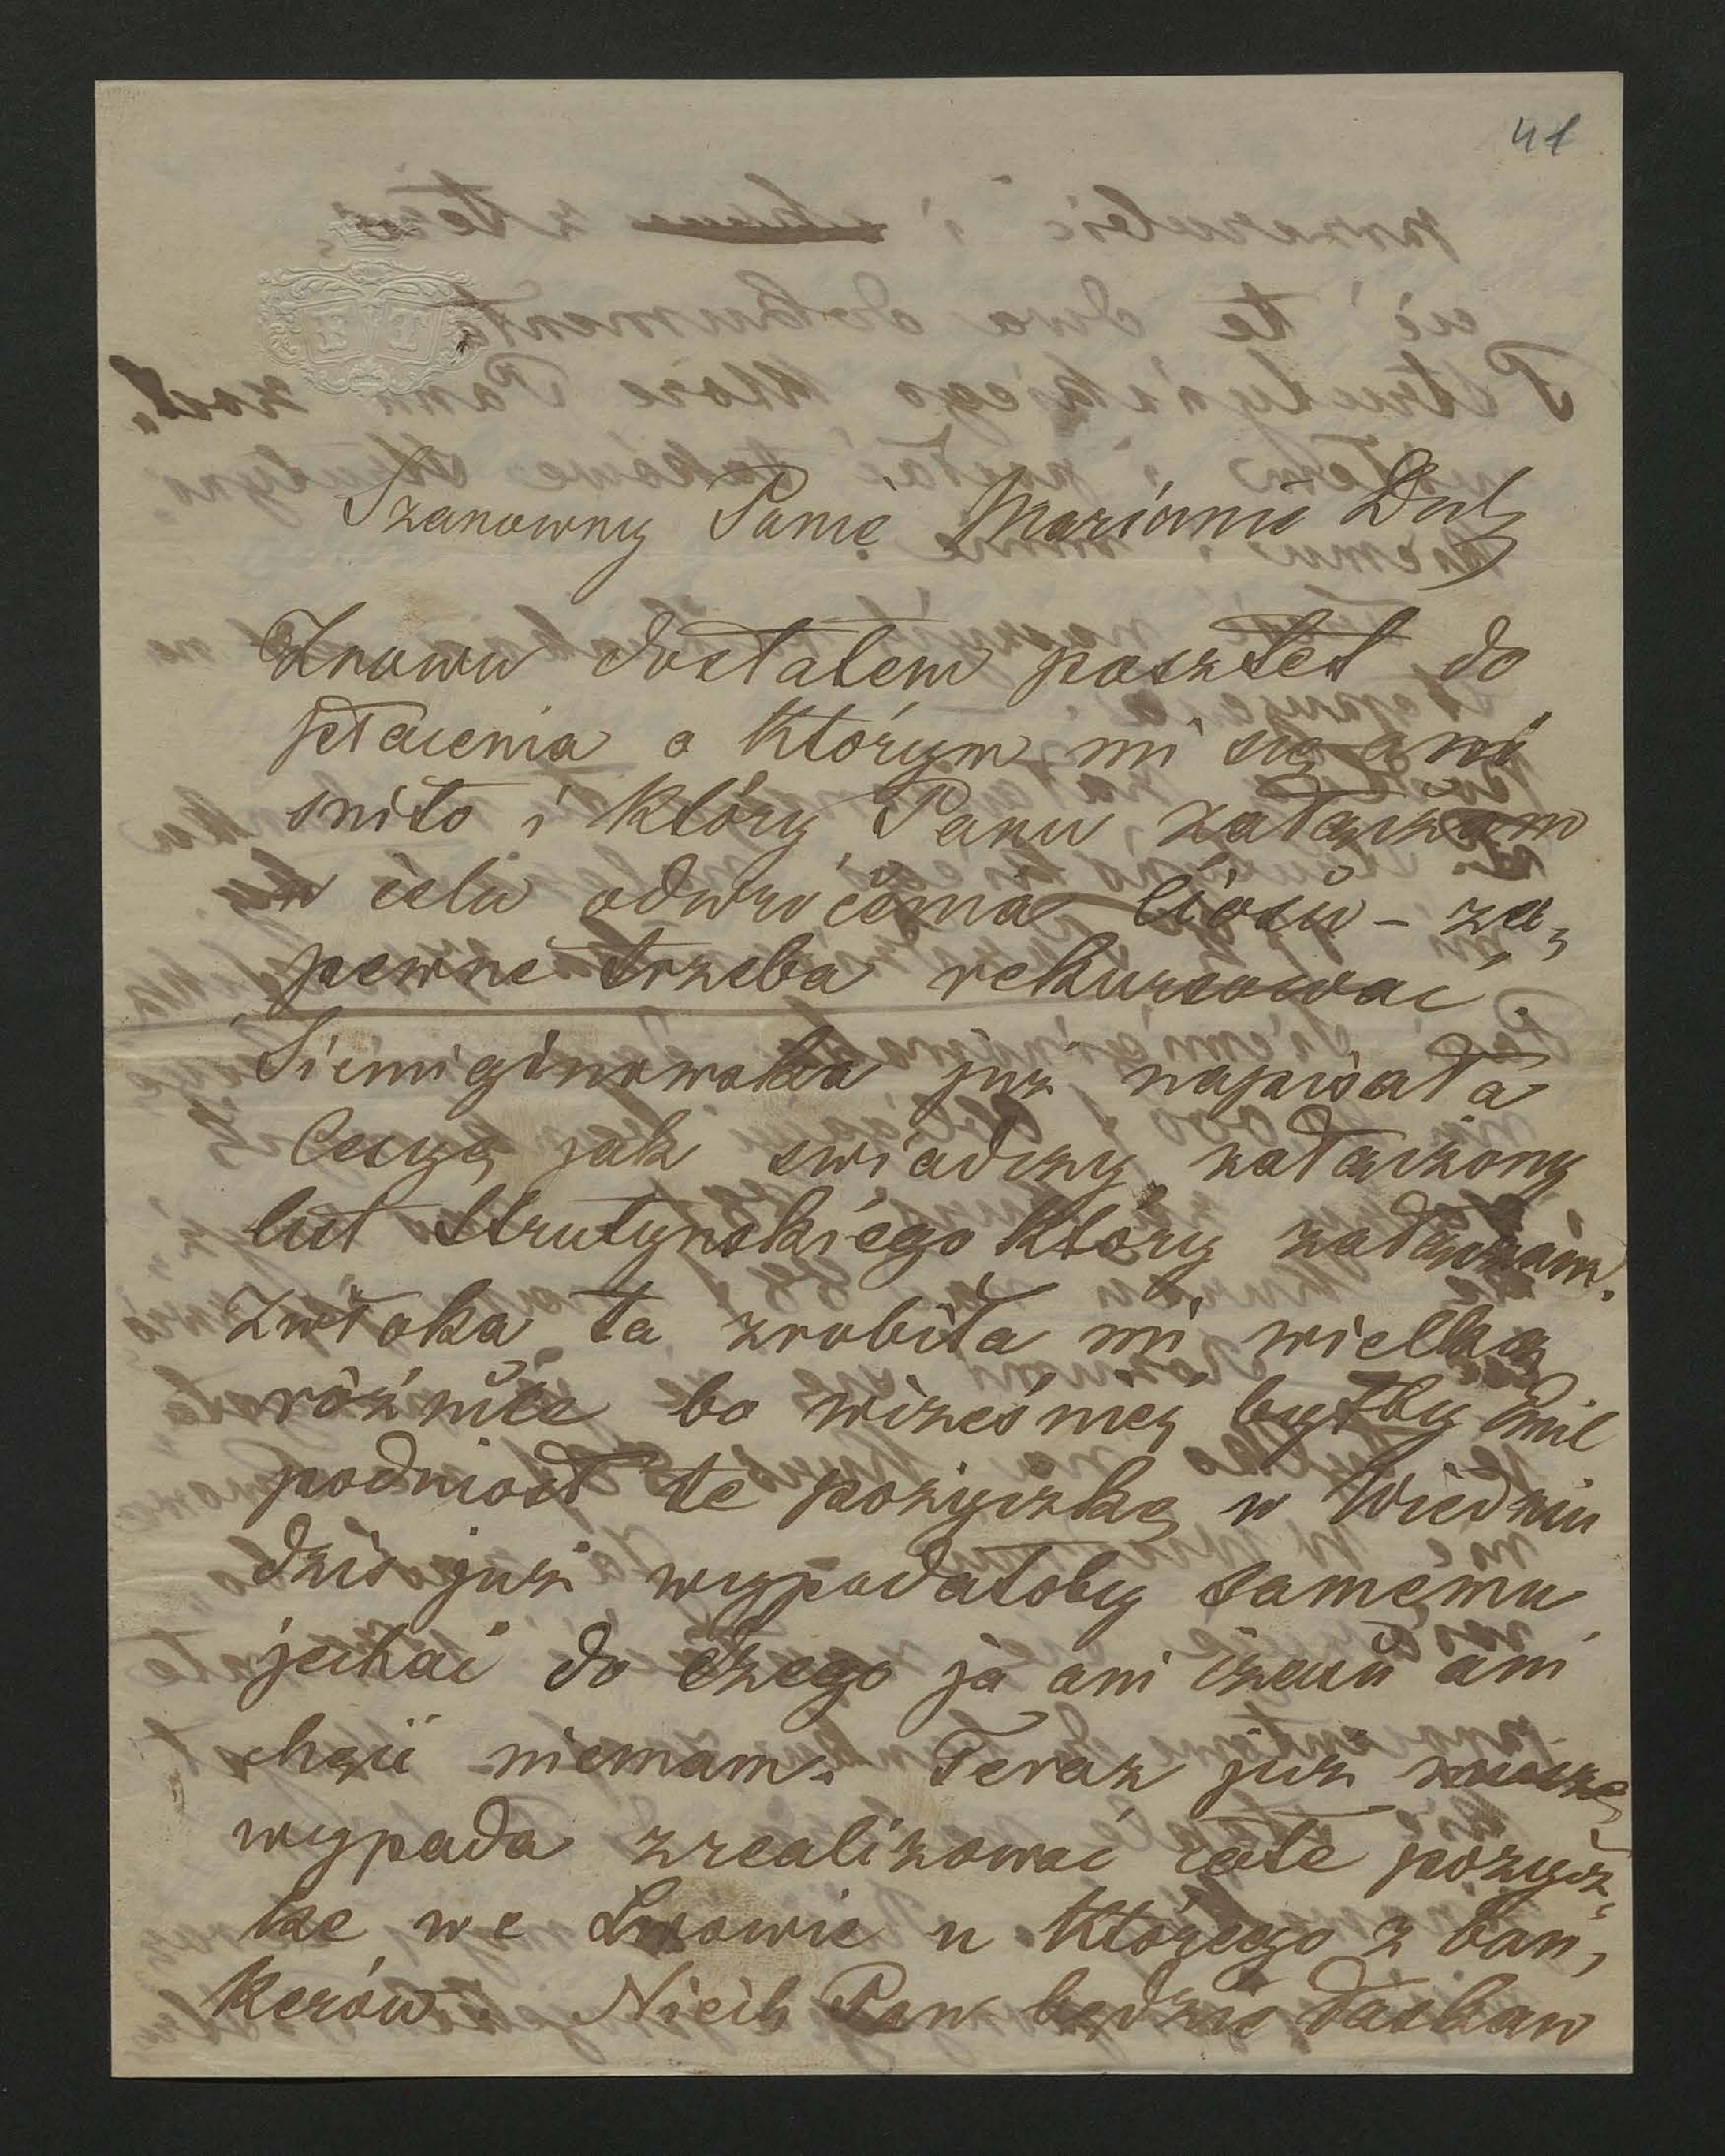 41
Szanowny Panie Maryanie Dob
Znowu dostałem posztet do
płacenia o którym mi się ani
sniło i który Panu załączam
w celu odwrócenia ciosu – za„
pewne trzeba rekursować.
Siemiginowska już napisała
Cecyę jak swiadczy załączony
list Strutynskiego który załączam.
Zwłoka ta zrobiła mi wielką
róźnice bo wczesniej byłby Emil
podniosł te pożyczkę w Wiedniu
dziś już wypadałoby samemu
jechać do czego ja ani czasu ani
chęci niemam. Teraz już
wypada zrealizować całe pożycz„
kę we Lwowie u którego z ban„
kierów. Niech Pan będzie łaskaw